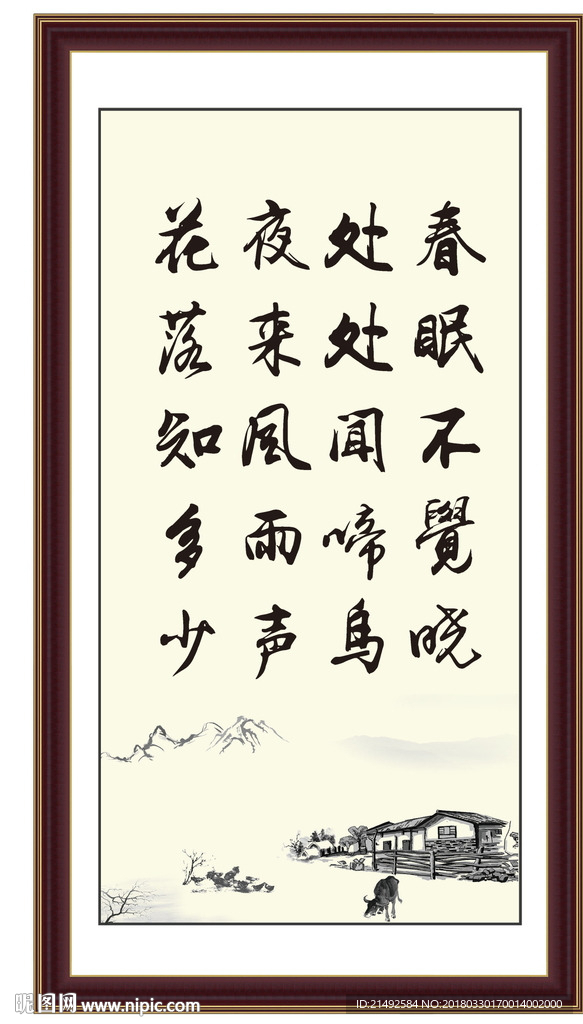 春眠不覺晓
处处闻啼鸟
夜来风雨声
花落知多少
昵图网 www.nipic.com
ID:21492584 NO:20180330170014002000